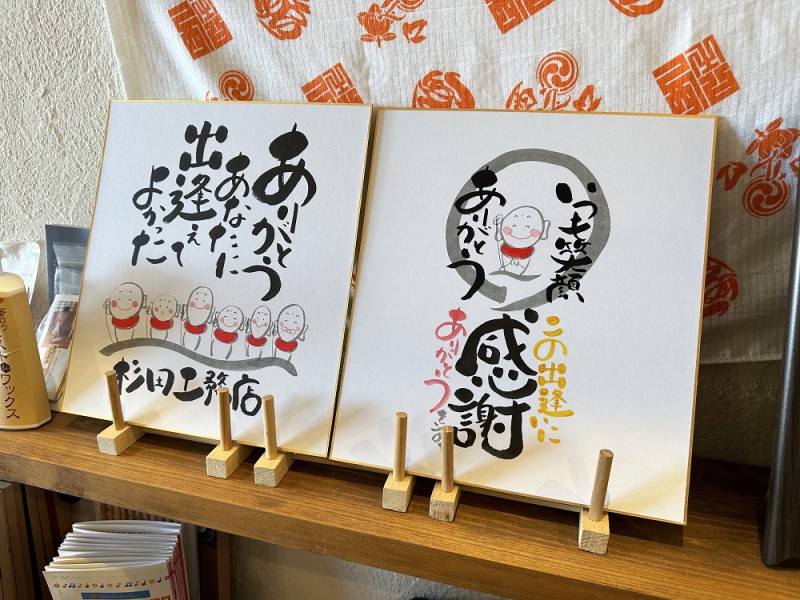 ありがとう
あなたに
出逢えて
よかった
杉田工務店
いつも笑顔
ありがとう
この出逢いに
感謝
ありがとう
ワックス